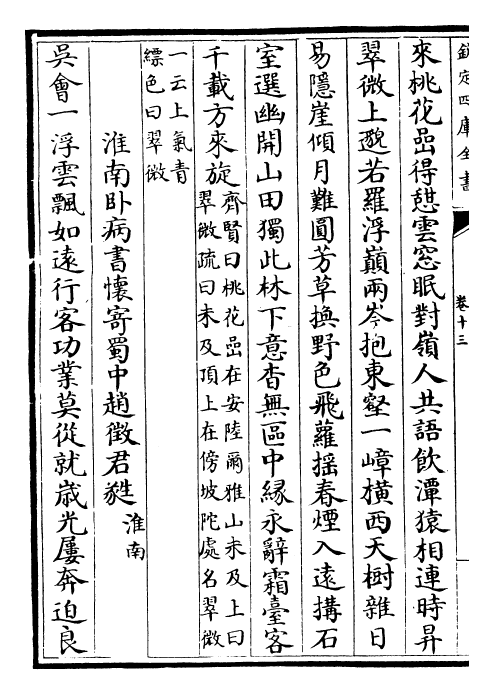 欽定四庫全書
卷十三
來桃花嵒得憇雲窓眠對嶺人共語飲潭猿相連時昇
翠微上邈若羅浮巔兩岑抱東壑一嶂橫西天樹雜日
易隱崖傾月難圓芳草換野色飛蘿揺春煙入遠搆石
室選幽開山田獨此林下意杳無區中緣永辭霜臺客
千載方來旋
齊賢曰桃花嵒在安陸爾雅山未及上曰
翠微疏曰未及頂上在傍坡陀處名翠微
一云上氣青
縹色曰翠微
淮南卧病書懐寄蜀中趙徵君蕤
淮南
吳會一浮雲飄如逺行客功業莫從就嵗光屢奔迫良